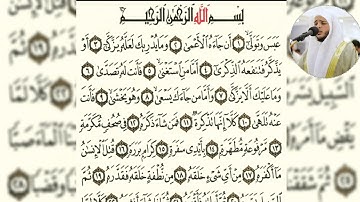 بِسْمِ اللَّهِ الرَّحْمَٰنِ الرَّحِيمِ
عَبَسَ وَتَوَلَّىٰ ١ أَن جَاءَهُ الْأَعْمَىٰ ٢ وَمَا يُدْرِيكَ لَعَلَّهُ يَزَّكَّىٰ ٣ أَوْ
يَذَّكَّرُ فَتَنفَعَهُ الذِّكْرَىٰ ٤ أَمَّا مَنِ اسْتَغْنَىٰ ٥ فَأَنتَ لَهُ تَصَدَّىٰ ٦
وَمَا عَلَيْكَ أَلَّا يَزَّكَّىٰ ٧ وَأَمَّا مَن جَاءَكَ يَسْعَىٰ ٨ وَهُوَ يَخْشَىٰ ٩ فَأَنتَ
عَنْهُ تَلَهَّىٰ ١٠ كَلَّا إِنَّهَا تَذْكِرَةٌ ١١ فَمَن شَاءَ ذَكَرَهُ ١٢ فِي صُحُفٍ مُّكَرَّمَةٍ
١٣ مَّرْفُوعَةٍ مُّطَهَّرَةٍ ١٤ بِأَيْدِي سَفَرَةٍ ١٥ كِرَامٍ بَرَرَةٍ ١٦ قُتِلَ الْإِنسَانُ
مَا أَكْفَرَهُ ١٧ مِنْ أَيِّ شَيْءٍ خَلَقَهُ ١٨ مِن نُّطْفَةٍ خَلَقَهُ فَقَدَّرَهُ ١٩ ثُمَّ